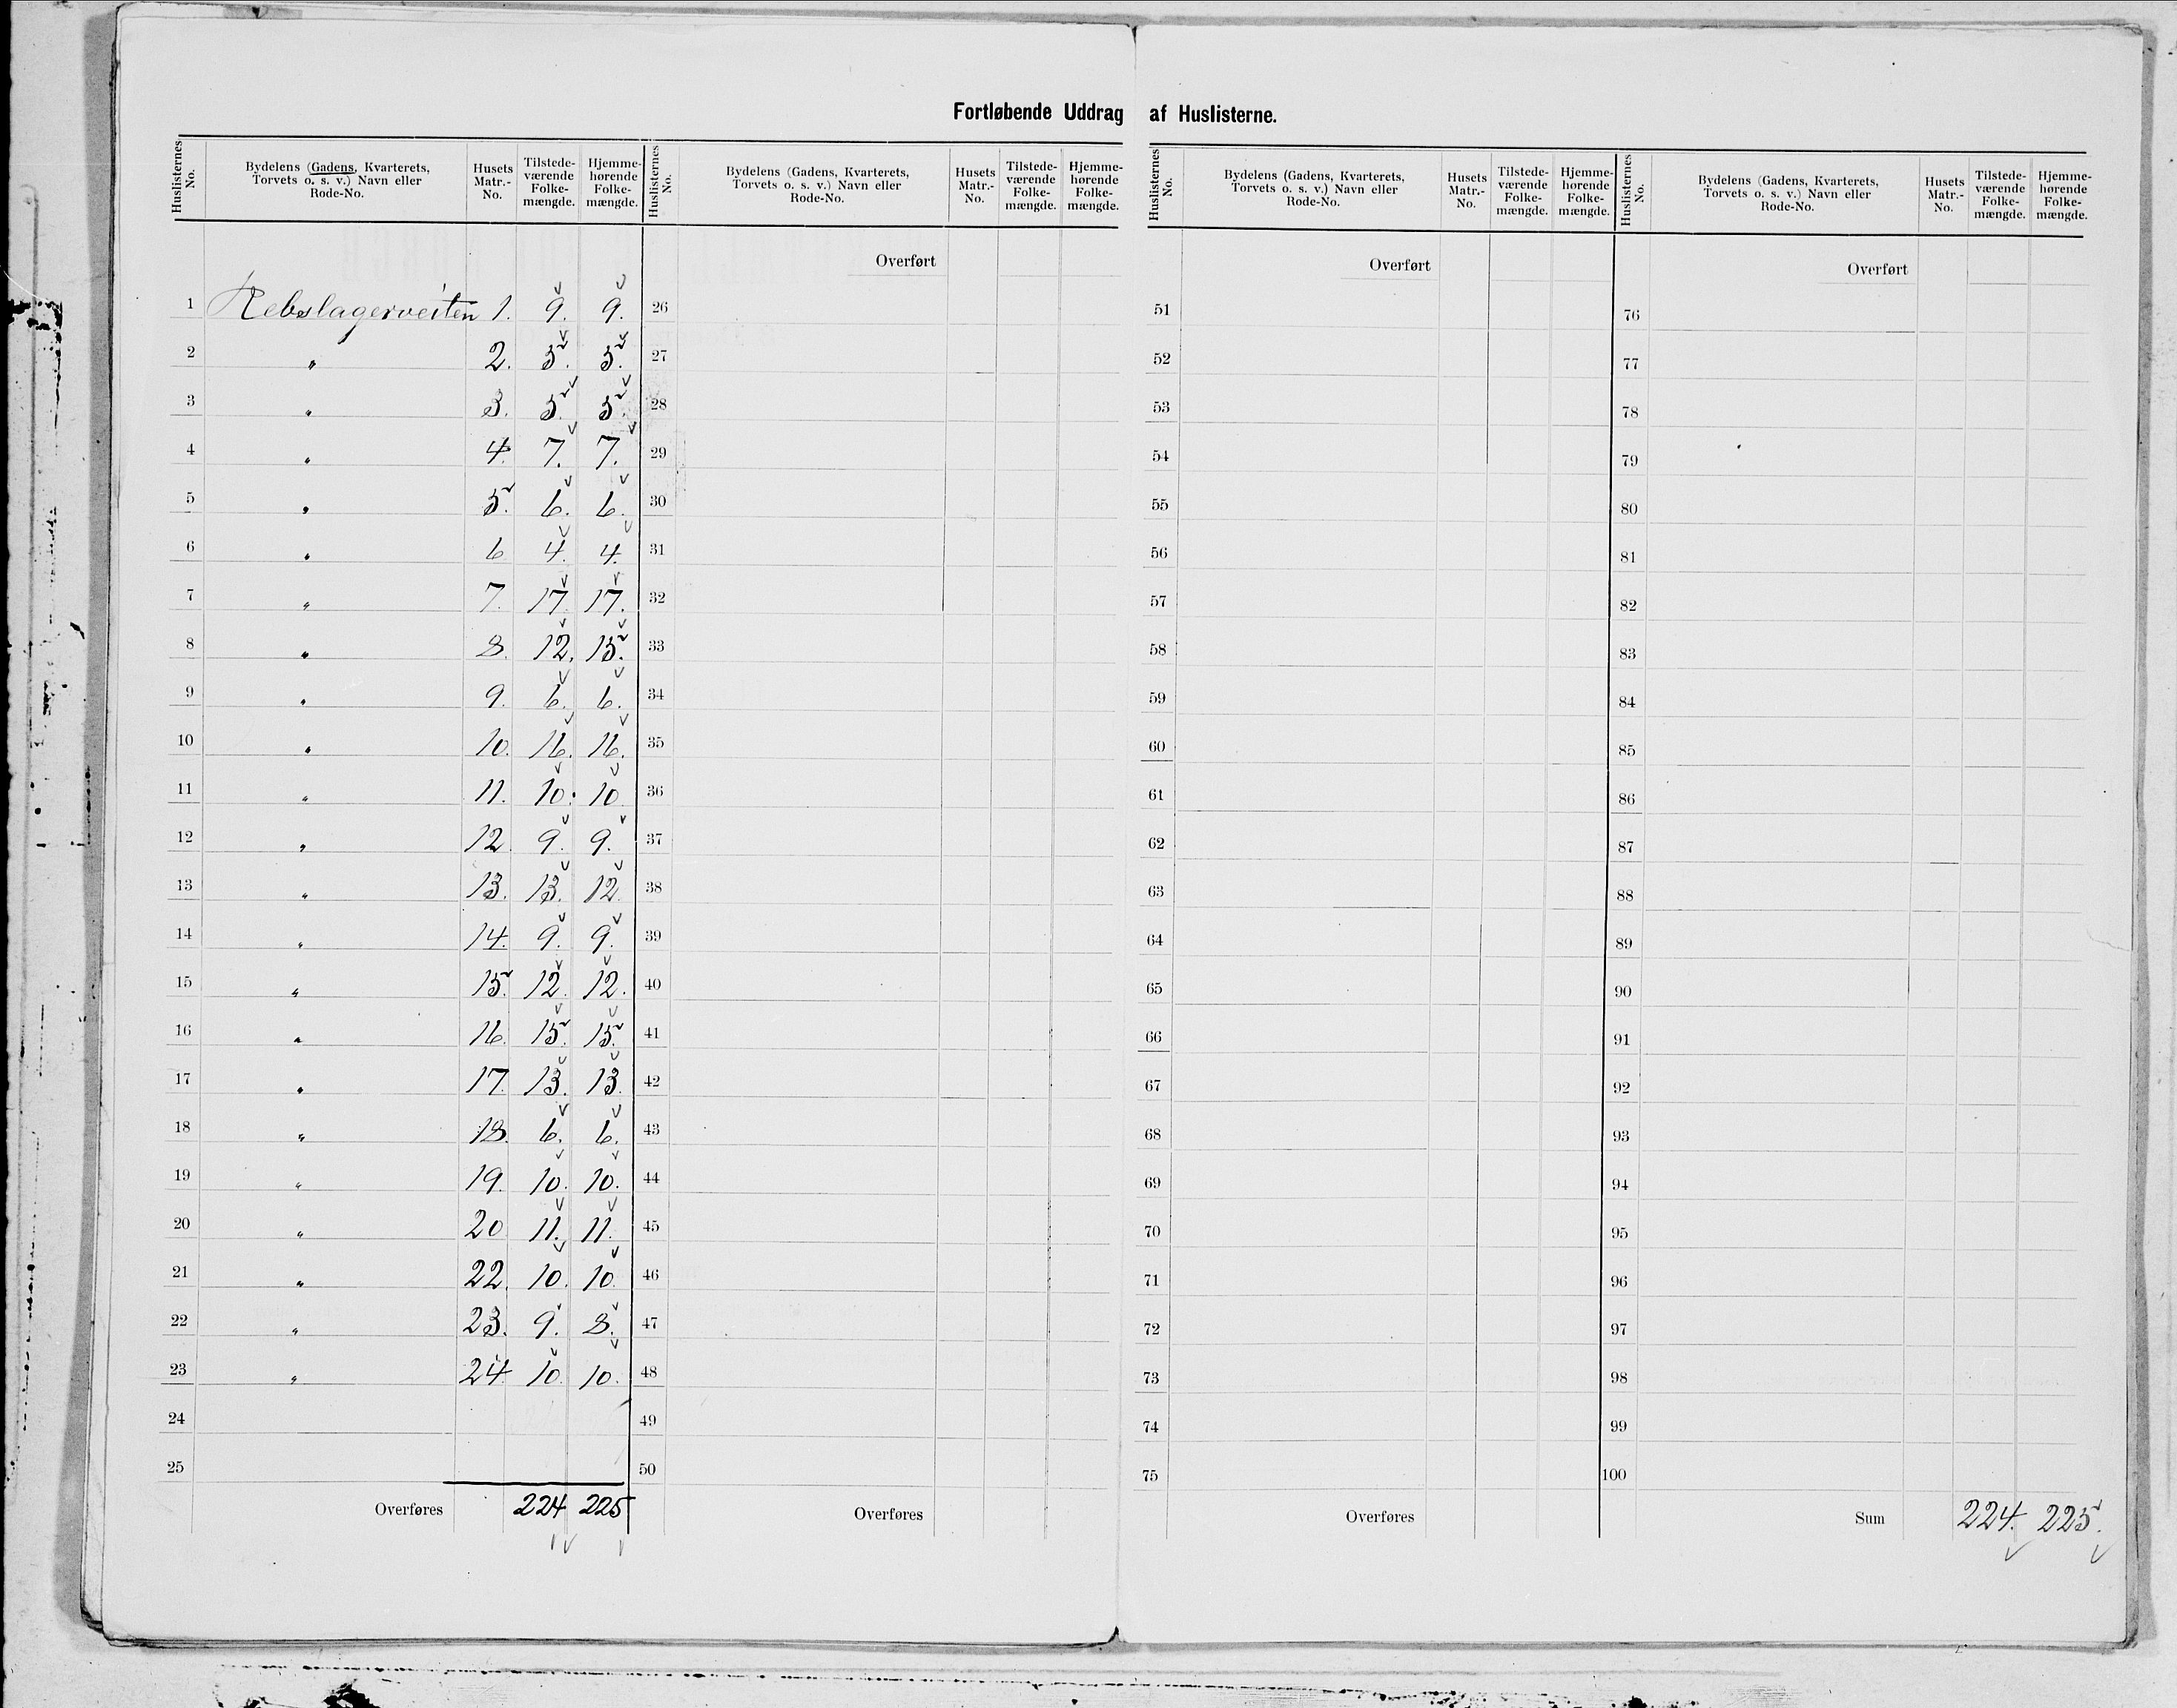 Fortløbende Uddrag af Huslisterne.
Huslisternes No. Bydelens (Gadens, Kvarterets, Torvets o. s. v.) Navn eller Rode-No. Husets Matr.-No. Tilstede-værende Folke-mængde. Hjemme-hørende Folke-mængde.
Huslisternes No. Bydelens (Gadens, Kvarterets, Torvets o. s. v.) Navn eller Rode-No. Husets Matr.-No. Tilstede-værende Folke-mængde. Hjemme-hørende Folke-mængde.
Huslisternes No. Bydelens (Gadens, Kvarterets, Torvets o. s. v.) Navn eller Rode-No. Husets Matr.-No. Tilstede-værende Folke-mængde. Hjemme-hørende Folke-mængde.
Huslisternes No. Bydelens (Gadens, Kvarterets, Torvets o. s. v.) Navn eller Rode-No. Husets Matr.-No. Tilstede-værende Folke-mængde. Hjemme-hørende Folke-mængde.
Overført Overført Overført
1 Rebslagerveiten 1. 9. 9. 26 51 76
2 " 2. 5. 5. 27 52 77
3 " 3. 5. 5. 28 53 78
4 " 4. 7. 7. 29 54 79
5 " 5. 6. 6. 30 55 80
6 " 6 4. 4. 31 56 81
7 " 7. 17. 17. 32 57 82
8 " 8. 12. 15. 33 58 83
9 " 9. 6. 6. 34 59 84
10 " 10. 16. 16. 35 60 85
11 " 11. 10. 10. 36 61 86
12 " 12. 9. 9. 37 62 87
13 " 13. 13. 12. 38 63 88
14 " 14. 9. 9. 39 64 89
15 " 15. 12. 12. 40 65 90
16 " 16. 15. 15. 41 66 91
17 " 17. 13. 13. 42 67 92
18 " 18. 6. 6. 43 68 93
19 " 19. 10. 10. 44 69 94
20 " 20 11. 11. 45 70 95
21 " 22. 10. 10. 46 71 96
22 " 23. 9. 8. 47 72 97
23 " 24 10. 10. 48 73 98
24 49 74 99
25 50 75 100
Overføres 224 225 Overføres Overføres Sum 224. 225.